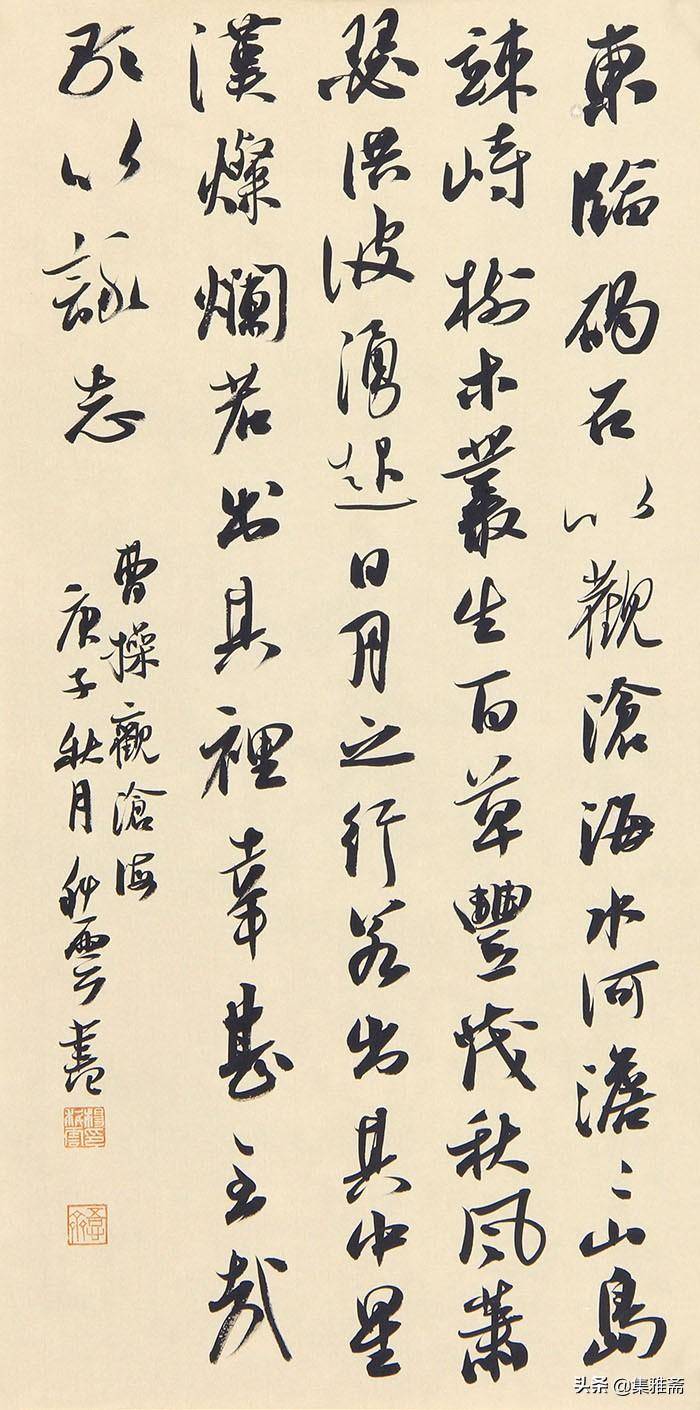 東臨碣石以觀滄海水河澹〻山島
竦峙樹木叢生百草豐茂秋風蕭
瑟洪波湧起日月之行若出其中星
漢燦爛若出其裡幸甚至哉
歌以詠志
曹操觀滄海
庚子秋月 雲書
头条 @集雅斋